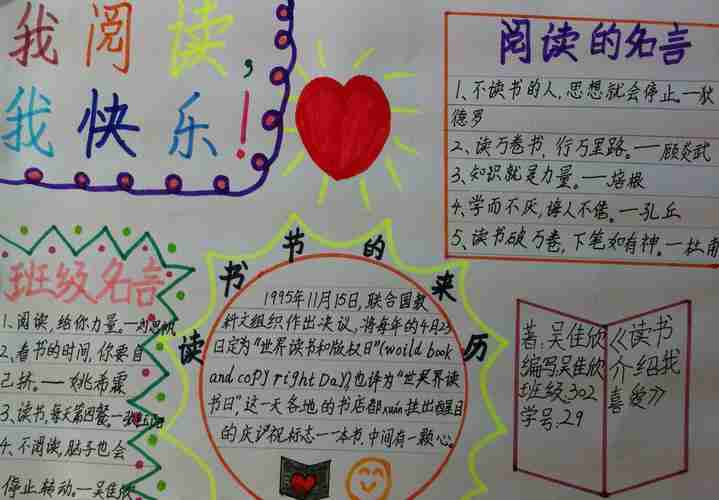 我阅读,
我快乐!
阅读的名言
1、不读书的人,思想就会停止。—狄
德罗
2、读万卷书,行万里路。—顾炎武
3、知识就是力量。—培根
4、学而不厌,诲人不倦。—孔丘
5、读书破万卷,下笔如有神。—杜甫
班级名言
1、阅读,给你力量。—刘思帆
2、看书的时间,你要自
己挤。—姚希霖
3、读书,每天第四餐。—张
4、不阅读,脑子也会
停止转动。—吴佳欣
读书节的来历
1995年11月15日,联合国教
科文组织作出决议,将每年的4月23
日定为“世界读书和版权日”(woild book
and copy right Day),也译为“世界读
书日”,这一天各地的书店都xuán挂出醒目
的庆祝标志—一本书,中间有一颗心。
著:吴佳欣
编写吴佳欣
班级:302
学号:29
《读书
介绍我
喜爱》